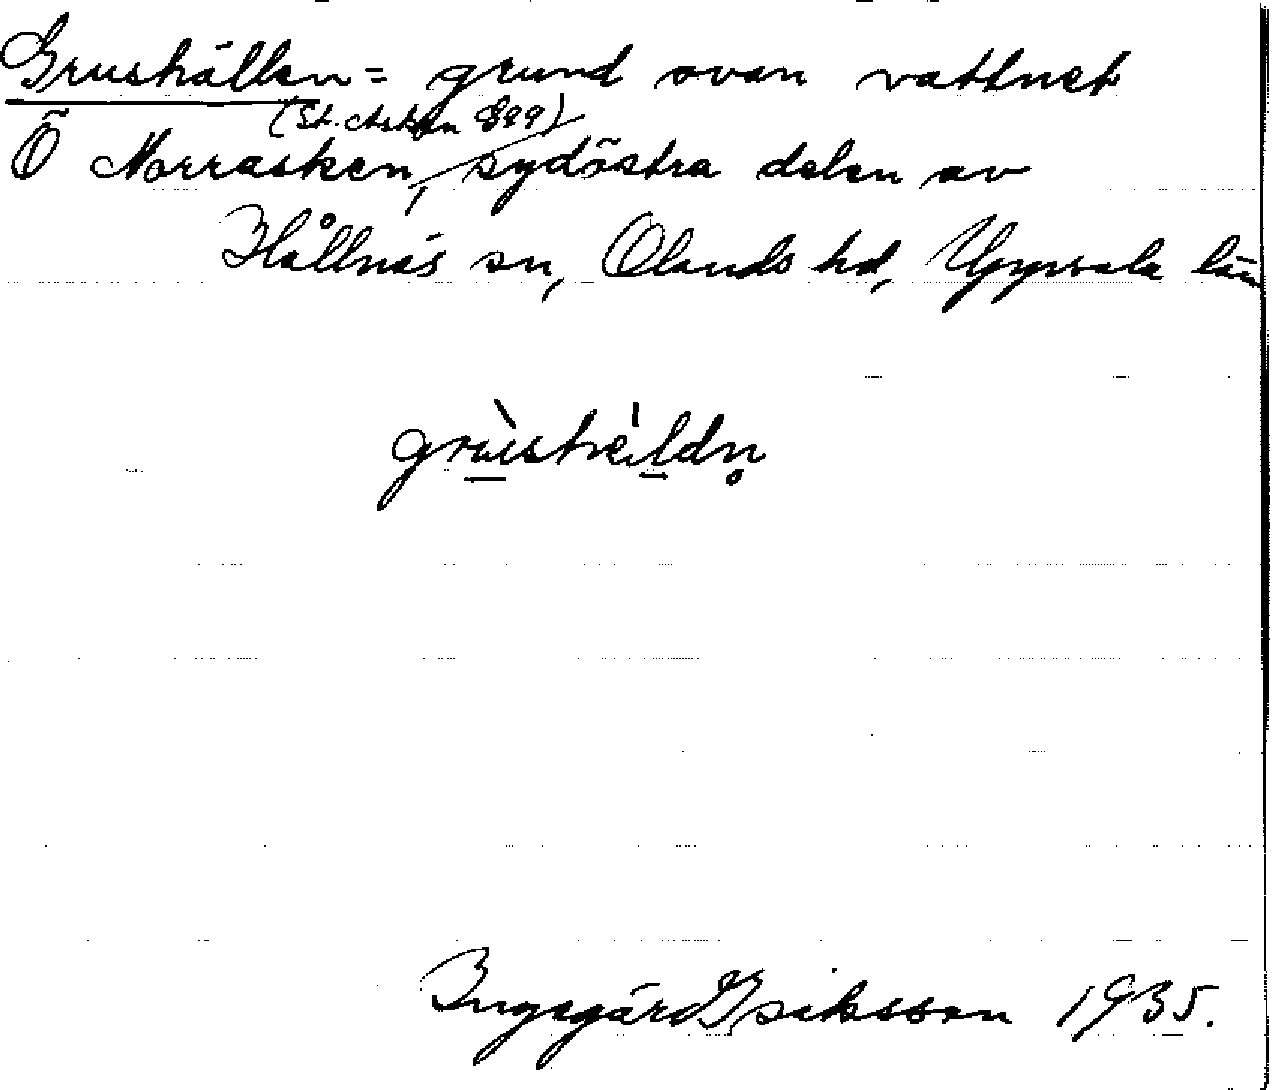 Grushällen = grund ovan vattnet
(St. Asken 899)
Ö Norrasken, sydöstra delen av
Hållnäs sn, Olands hd, Uppsala län
grùshéldn̥
Ingegärd Eriksson 1935.